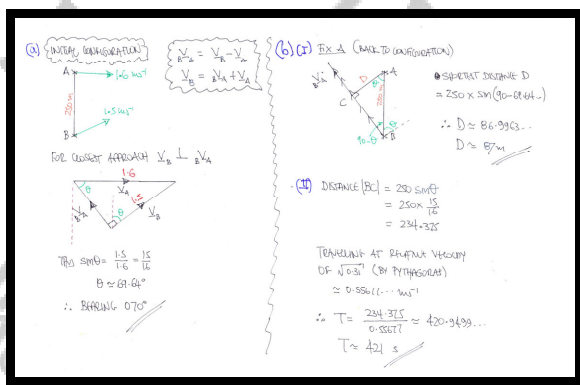 (a) INITIAL CONFIGURATION
A
1.6 ms⁻¹
250 m
1.5 ms⁻¹
B
BVA = VB - VA
VB = BVA + VA
FOR CLOSEST APPROACH VB ⊥ BVA
1.6
θ
VA
BVA
θ
1.5
VB
THUS sinθ = 1.5/1.6 = 15/16
θ ≃ 69.64°
∴ BEARING 070°
(b) (I) FIX A (BACK TO CONFIGURATION)
BVA
D
A
θ
C
250 m
90-θ
θ
B
SHORTEST DISTANCE D
= 250 × sin(90-69.64..)
∴ D ≃ 86.9963...
D ≃ 87m
(II) DISTANCE |BC| = 250 sinθ
= 250 × 15/16
= 234.375
TRAVELLING AT RELATIVE VELOCITY
OF √0.31 (BY PYTHAGORAS)
≃ 0.55677... ms⁻¹
∴ T = 234.375/0.55677 ≃ 420.9499...
T ≃ 421 s